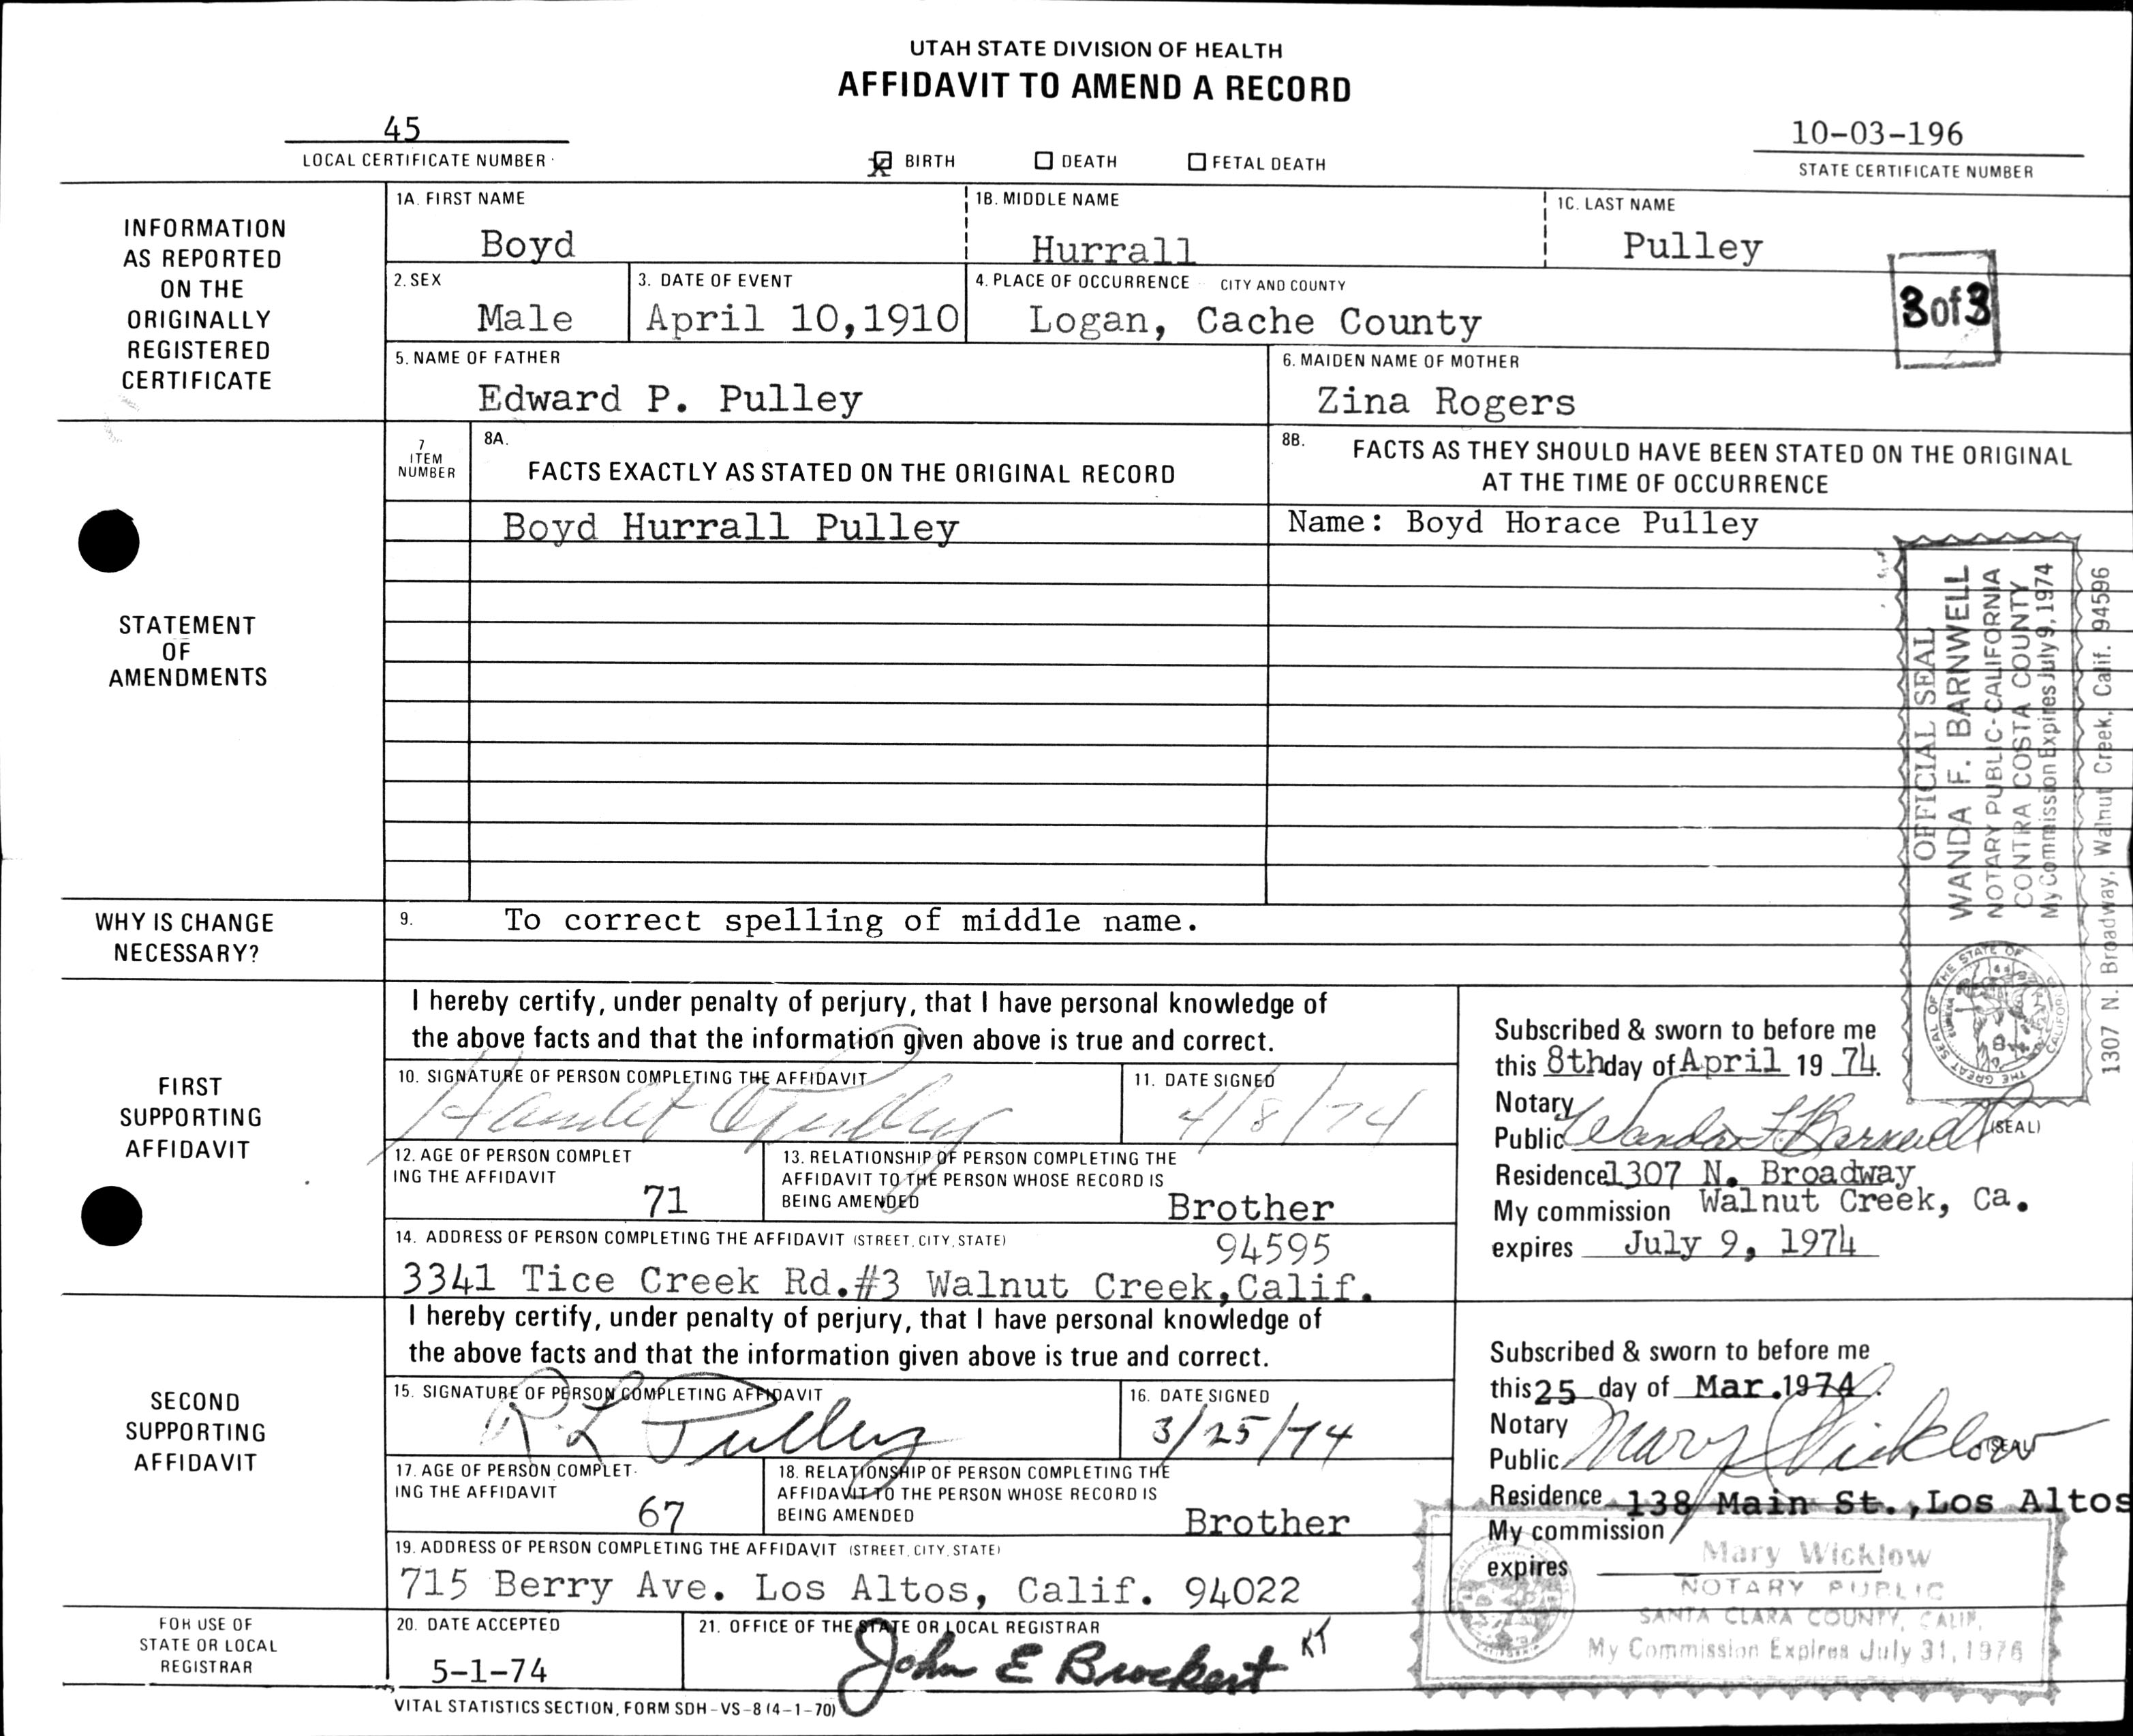 UTAH STATE DIVISION OF HEALTH
AFFIDAVIT TO AMEND A RECORD
45
LOCAL CERTIFICATE NUMBER
X BIRTH
DEATH
FETAL DEATH
10-03-196
STATE CERTIFICATE NUMBER
INFORMATION
AS REPORTED
ON THE
ORIGINALLY
REGISTERED
CERTIFICATE
1A. FIRST NAME
Boyd
1B. MIDDLE NAME
Hurrall
1C. LAST NAME
Pulley
2. SEX
Male
3. DATE OF EVENT
April 10,1910
4. PLACE OF OCCURRENCE CITY AND COUNTY
Logan, Cache County
3 of 3
5. NAME OF FATHER
Edward P. Pulley
6. MAIDEN NAME OF MOTHER
Zina Rogers
STATEMENT
OF
AMENDMENTS
7
ITEM
NUMBER
8A.
FACTS EXACTLY AS STATED ON THE ORIGINAL RECORD
8B. FACTS AS THEY SHOULD HAVE BEEN STATED ON THE ORIGINAL
AT THE TIME OF OCCURRENCE
Boyd Hurrall Pulley
Name: Boyd Horace Pulley
OFFICIAL SEAL
WANDA F. BARNWELL
NOTARY PUBLIC-CALIFORNIA
CONTRA COSTA COUNTY
My Commission Expires July 9, 1974
1307 N. Broadway, Walnut Creek, Calif. 94596
THE GREAT SEAL OF THE STATE OF CALIFORNIA
EUREKA
WHY IS CHANGE
NECESSARY?
9. To correct spelling of middle name.
FIRST
SUPPORTING
AFFIDAVIT
I hereby certify, under penalty of perjury, that I have personal knowledge of
the above facts and that the information given above is true and correct.
10. SIGNATURE OF PERSON COMPLETING THE AFFIDAVIT
Pulley
11. DATE SIGNED
4/8/74
12. AGE OF PERSON COMPLET
ING THE AFFIDAVIT
71
13. RELATIONSHIP OF PERSON COMPLETING THE
AFFIDAVIT TO THE PERSON WHOSE RECORD IS
BEING AMENDED
Brother
14. ADDRESS OF PERSON COMPLETING THE AFFIDAVIT (STREET, CITY, STATE)
94595
3341 Tice Creek Rd.#3 Walnut Creek,Calif.
Subscribed & sworn to before me
this 8th day of April 19 74.
Notary
Public Wanda F. Barnwell (SEAL)
Residence 1307 N. Broadway
My commission Walnut Creek, Ca.
expires July 9, 1974
SECOND
SUPPORTING
AFFIDAVIT
I hereby certify, under penalty of perjury, that I have personal knowledge of
the above facts and that the information given above is true and correct.
15. SIGNATURE OF PERSON COMPLETING AFFIDAVIT
R L Pulley
16. DATE SIGNED
3/25/74
17. AGE OF PERSON COMPLET-
ING THE AFFIDAVIT
67
18. RELATIONSHIP OF PERSON COMPLETING THE
AFFIDAVIT TO THE PERSON WHOSE RECORD IS
BEING AMENDED
Brother
19. ADDRESS OF PERSON COMPLETING THE AFFIDAVIT (STREET, CITY, STATE)
715 Berry Ave. Los Altos, Calif. 94022
Subscribed & sworn to before me
this 25 day of Mar.1974.
Notary
Public Mary Wicklow (SEAL)
Residence 138 Main St.,Los Altos
My commission
expires
Mary Wicklow
NOTARY PUBLIC
SANTA CLARA COUNTY, CALIF.
My Commission Expires July 31, 1976
FOR USE OF
STATE OR LOCAL
REGISTRAR
20. DATE ACCEPTED
5-1-74
21. OFFICE OF THE STATE OR LOCAL REGISTRAR
John E Brockert KT
VITAL STATISTICS SECTION, FORM SDH-VS-8 (4-1-70)